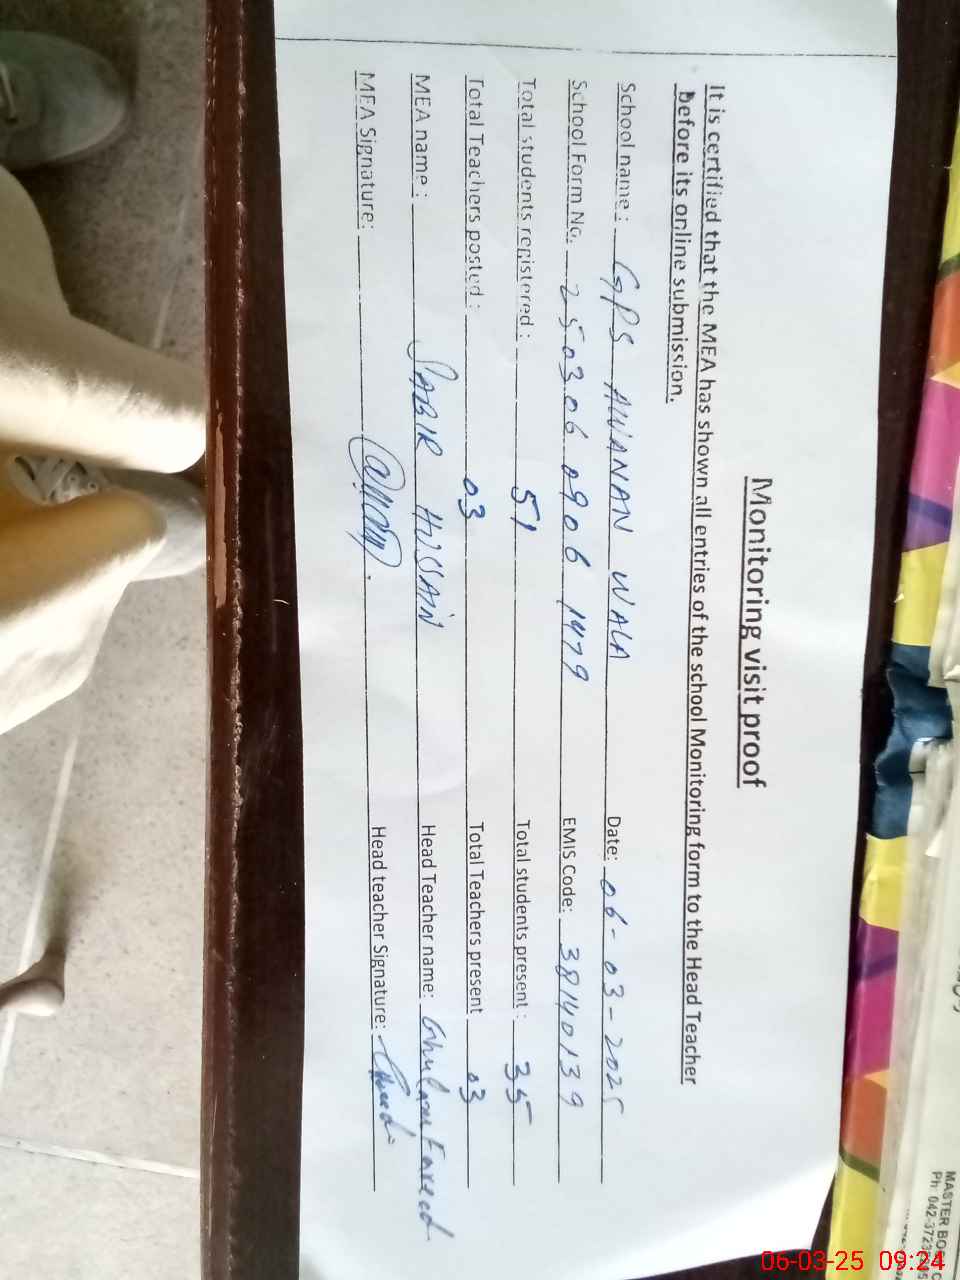 Monitoring visit proof
It is certified that the MEA has shown all entries of the school Monitoring form to the Head Teacher
before its online submission.
School name: GPS AWANAN WALA Date: 06-03-2025
School Form No. 250306 0906 1479 EMIS Code: 38140139
Total students registered: 51 Total students present: 35
Total Teachers posted: 03 Total Teachers present 03
MEA name: SABIR HUSSAIN Head Teacher name: Ghulam Fareed
MEA Signature: Head teacher Signature:
MASTER BO
Ph: 042-3723
06-03-25 09:24